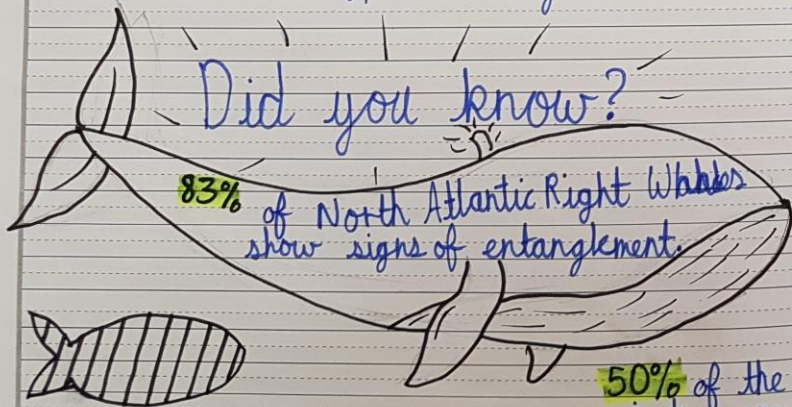 Did you know?
83% of North Atlantic Right Whales
show signs of entanglement.
50% of the